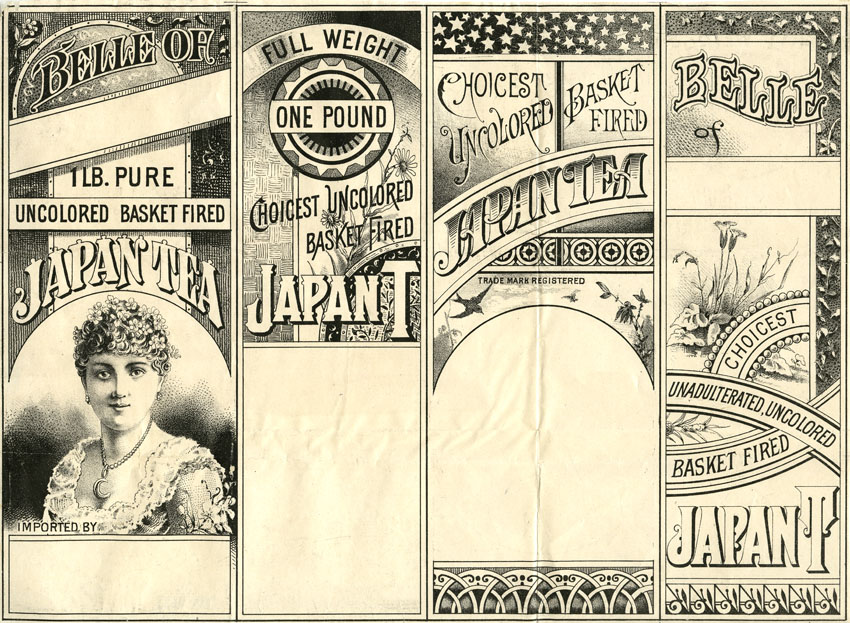 BELLE OF
1 LB. PURE
UNCOLORED BASKET FIRED
JAPAN TEA
IMPORTED BY
FULL WEIGHT
ONE POUND
CHOICEST UNCOLORED
BASKET FIRED
JAPAN T
CHOICEST
UNCOLORED
BASKET
FIRED
JAPAN TEA
TRADE MARK REGISTERED
BELLE
of
CHOICEST
UNADULTERATED, UNCOLORED
BASKET FIRED
JAPAN T